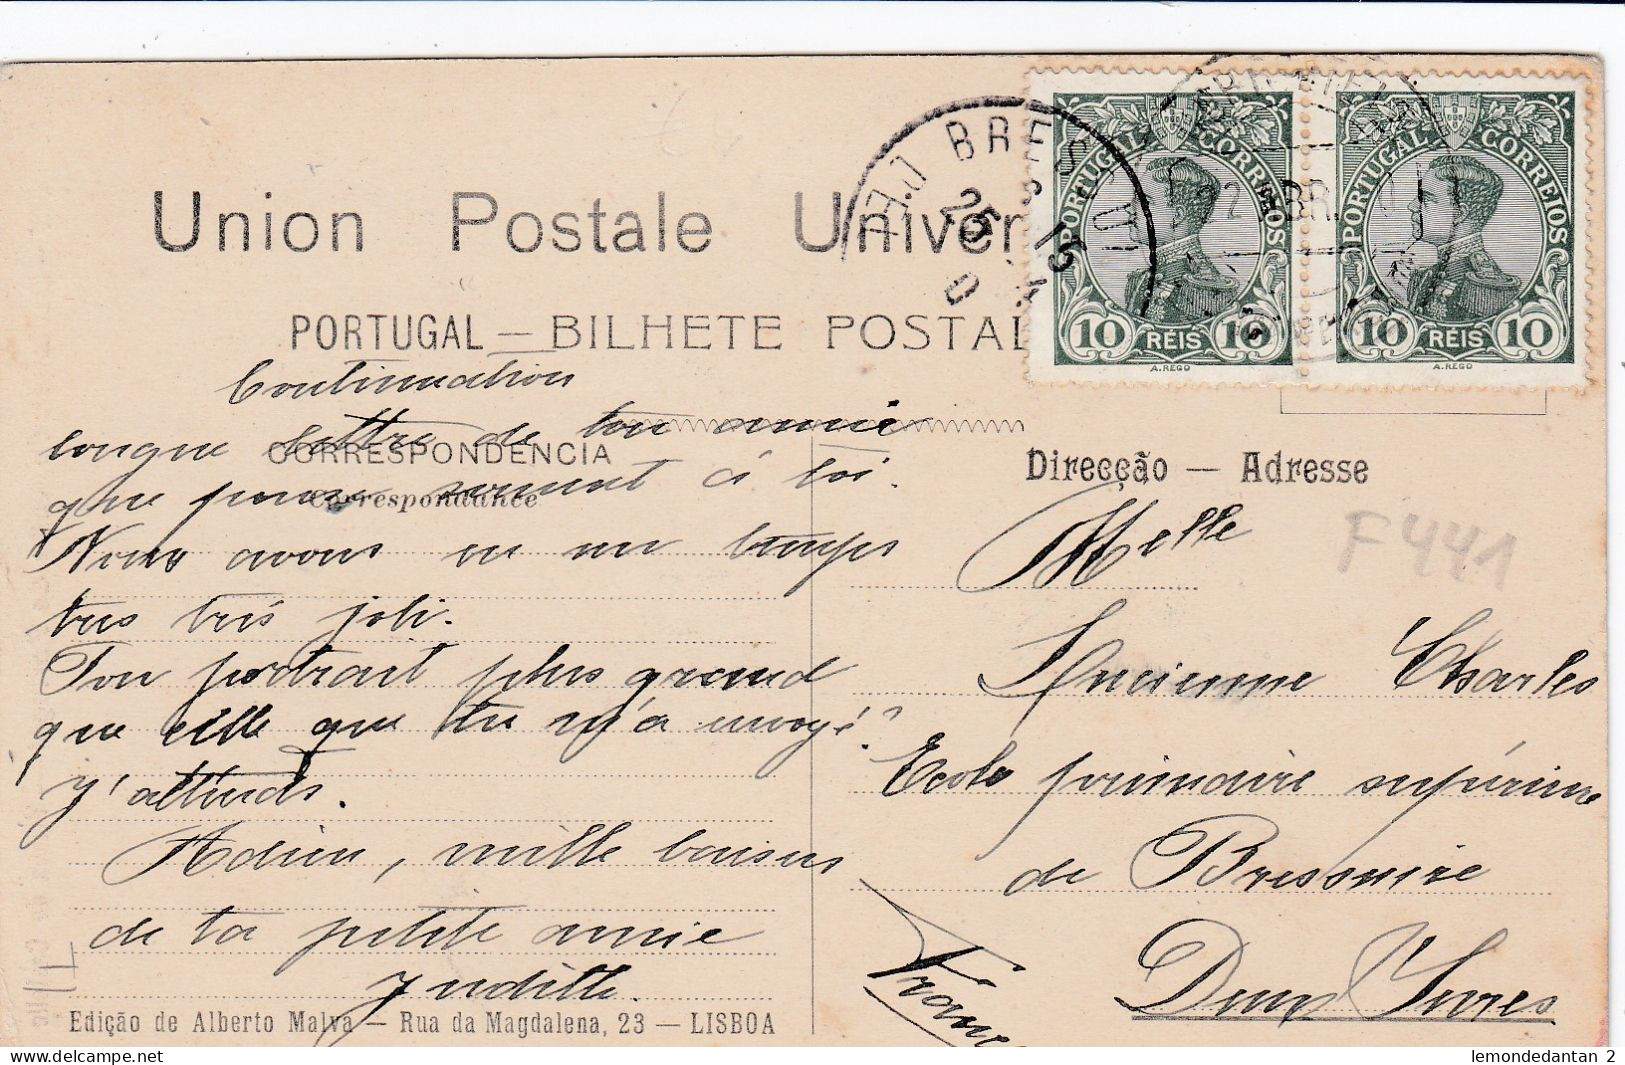 Union Postale Univer
PORTUGAL — BILHETE POSTAL
PORTUGAL CORREIOS
10 REIS 10
A. REGO
PORTUGAL CORREIOS
10 REIS 10
A. REGO
BRES
25
2 ABR.
Continuation
longue lettre de ton amie
CORRESPONDENCIA
que pense souvent à toi.
Correspondance
Nous avons eu un temps
tres très joli.
Ton portrait plus grand
que celle que tu m'a envoyé?
J'attends.
Adieu, mille baisers
de ta petite amie
Judith.
Edição de Alberto Malva — Rua da Magdalena, 23 — LISBOA
Direcção — Adresse
F441
Melle
Lucienne Charles
Ecole primaire supérieure
de Bressuire
Deux Sevres
France
lemondedantan 2